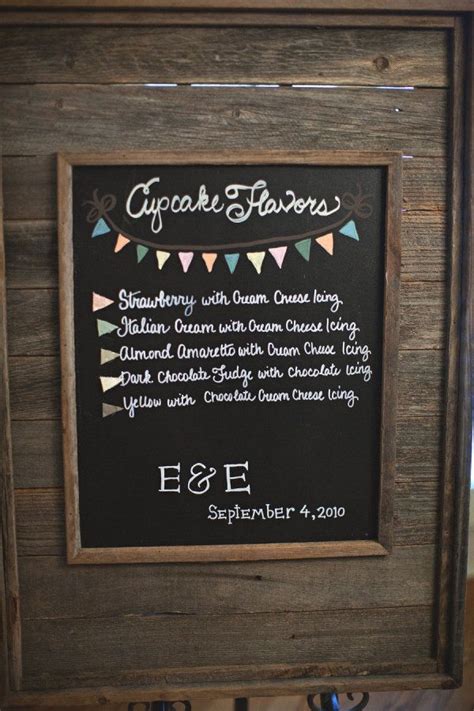 Cupcake Flavors
Strawberry with Cream Cheese Icing
Italian Cream with Cream Cheese Icing
Almond Amaretto with Cream Cheese Icing
Dark Chocolate Fudge with Chocolate Icing
Yellow with Chocolate Cream Cheese Icing
E & E
September 4, 2010